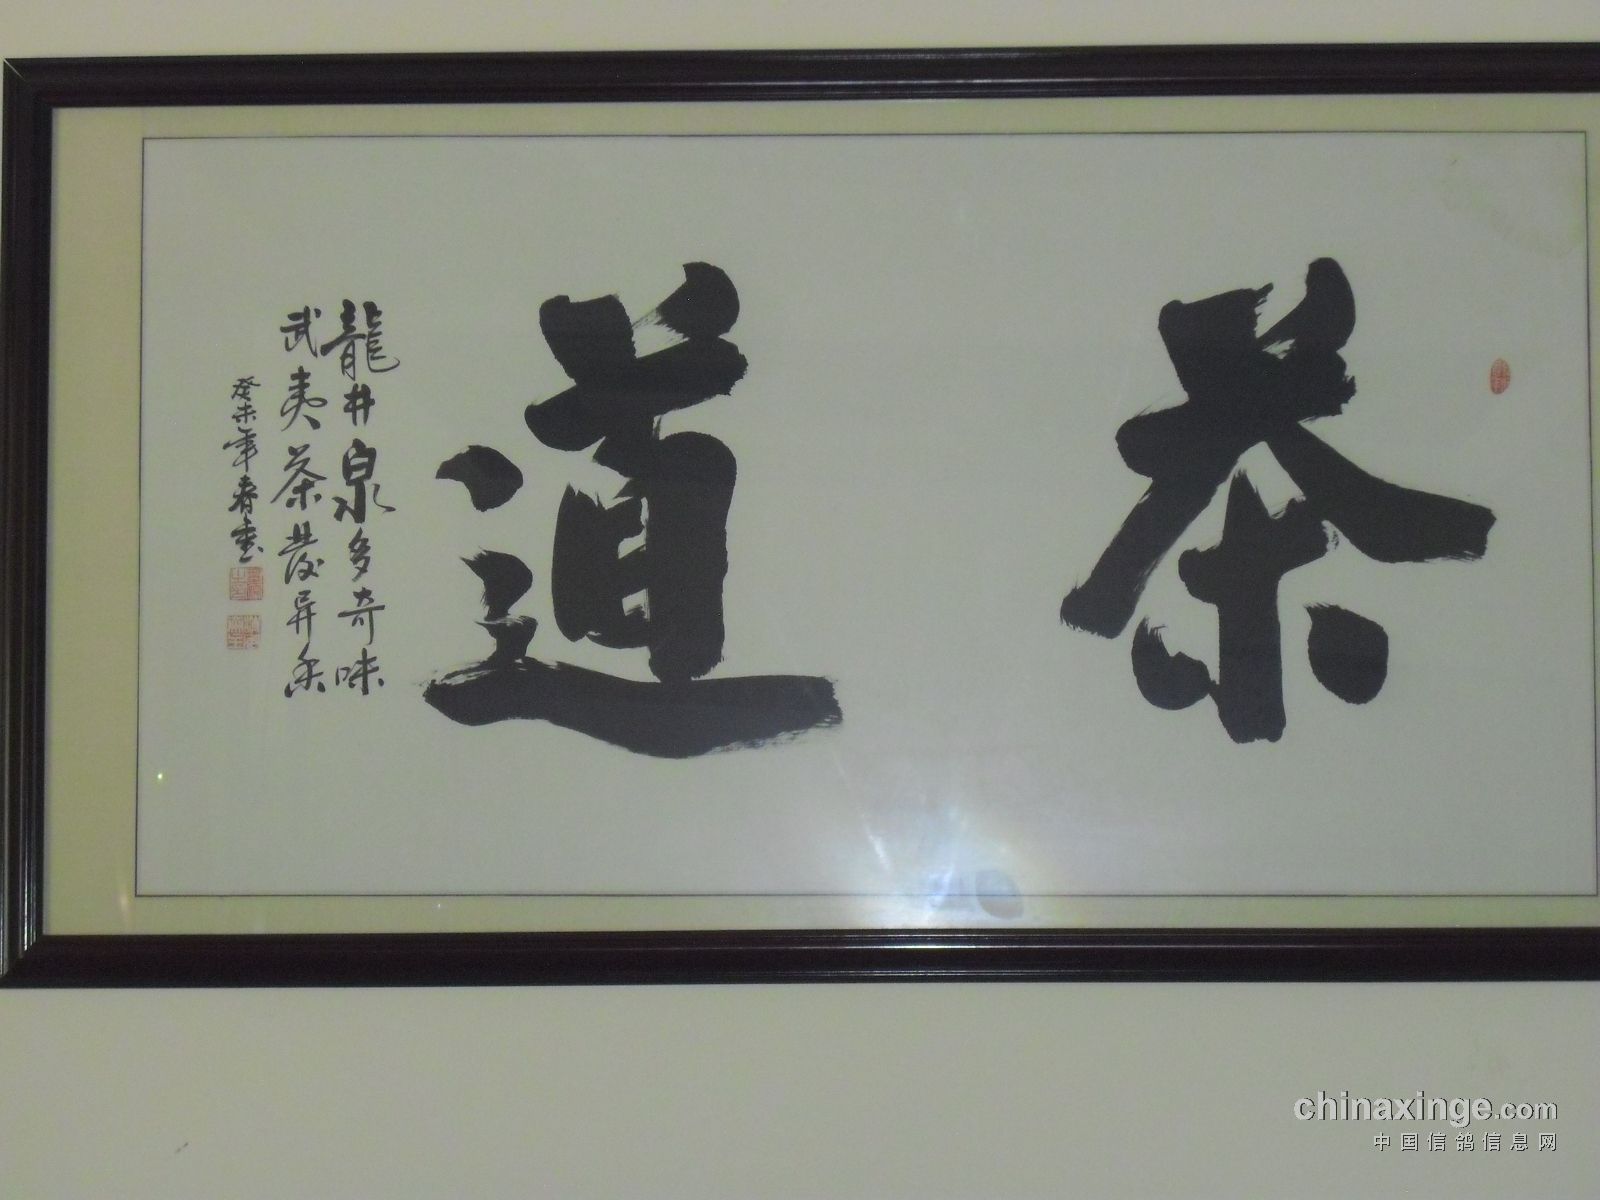 茶道
龍井泉多奇味
武夷茶發异香
癸未年春
chinaxinge.com
中国信鸽信息网